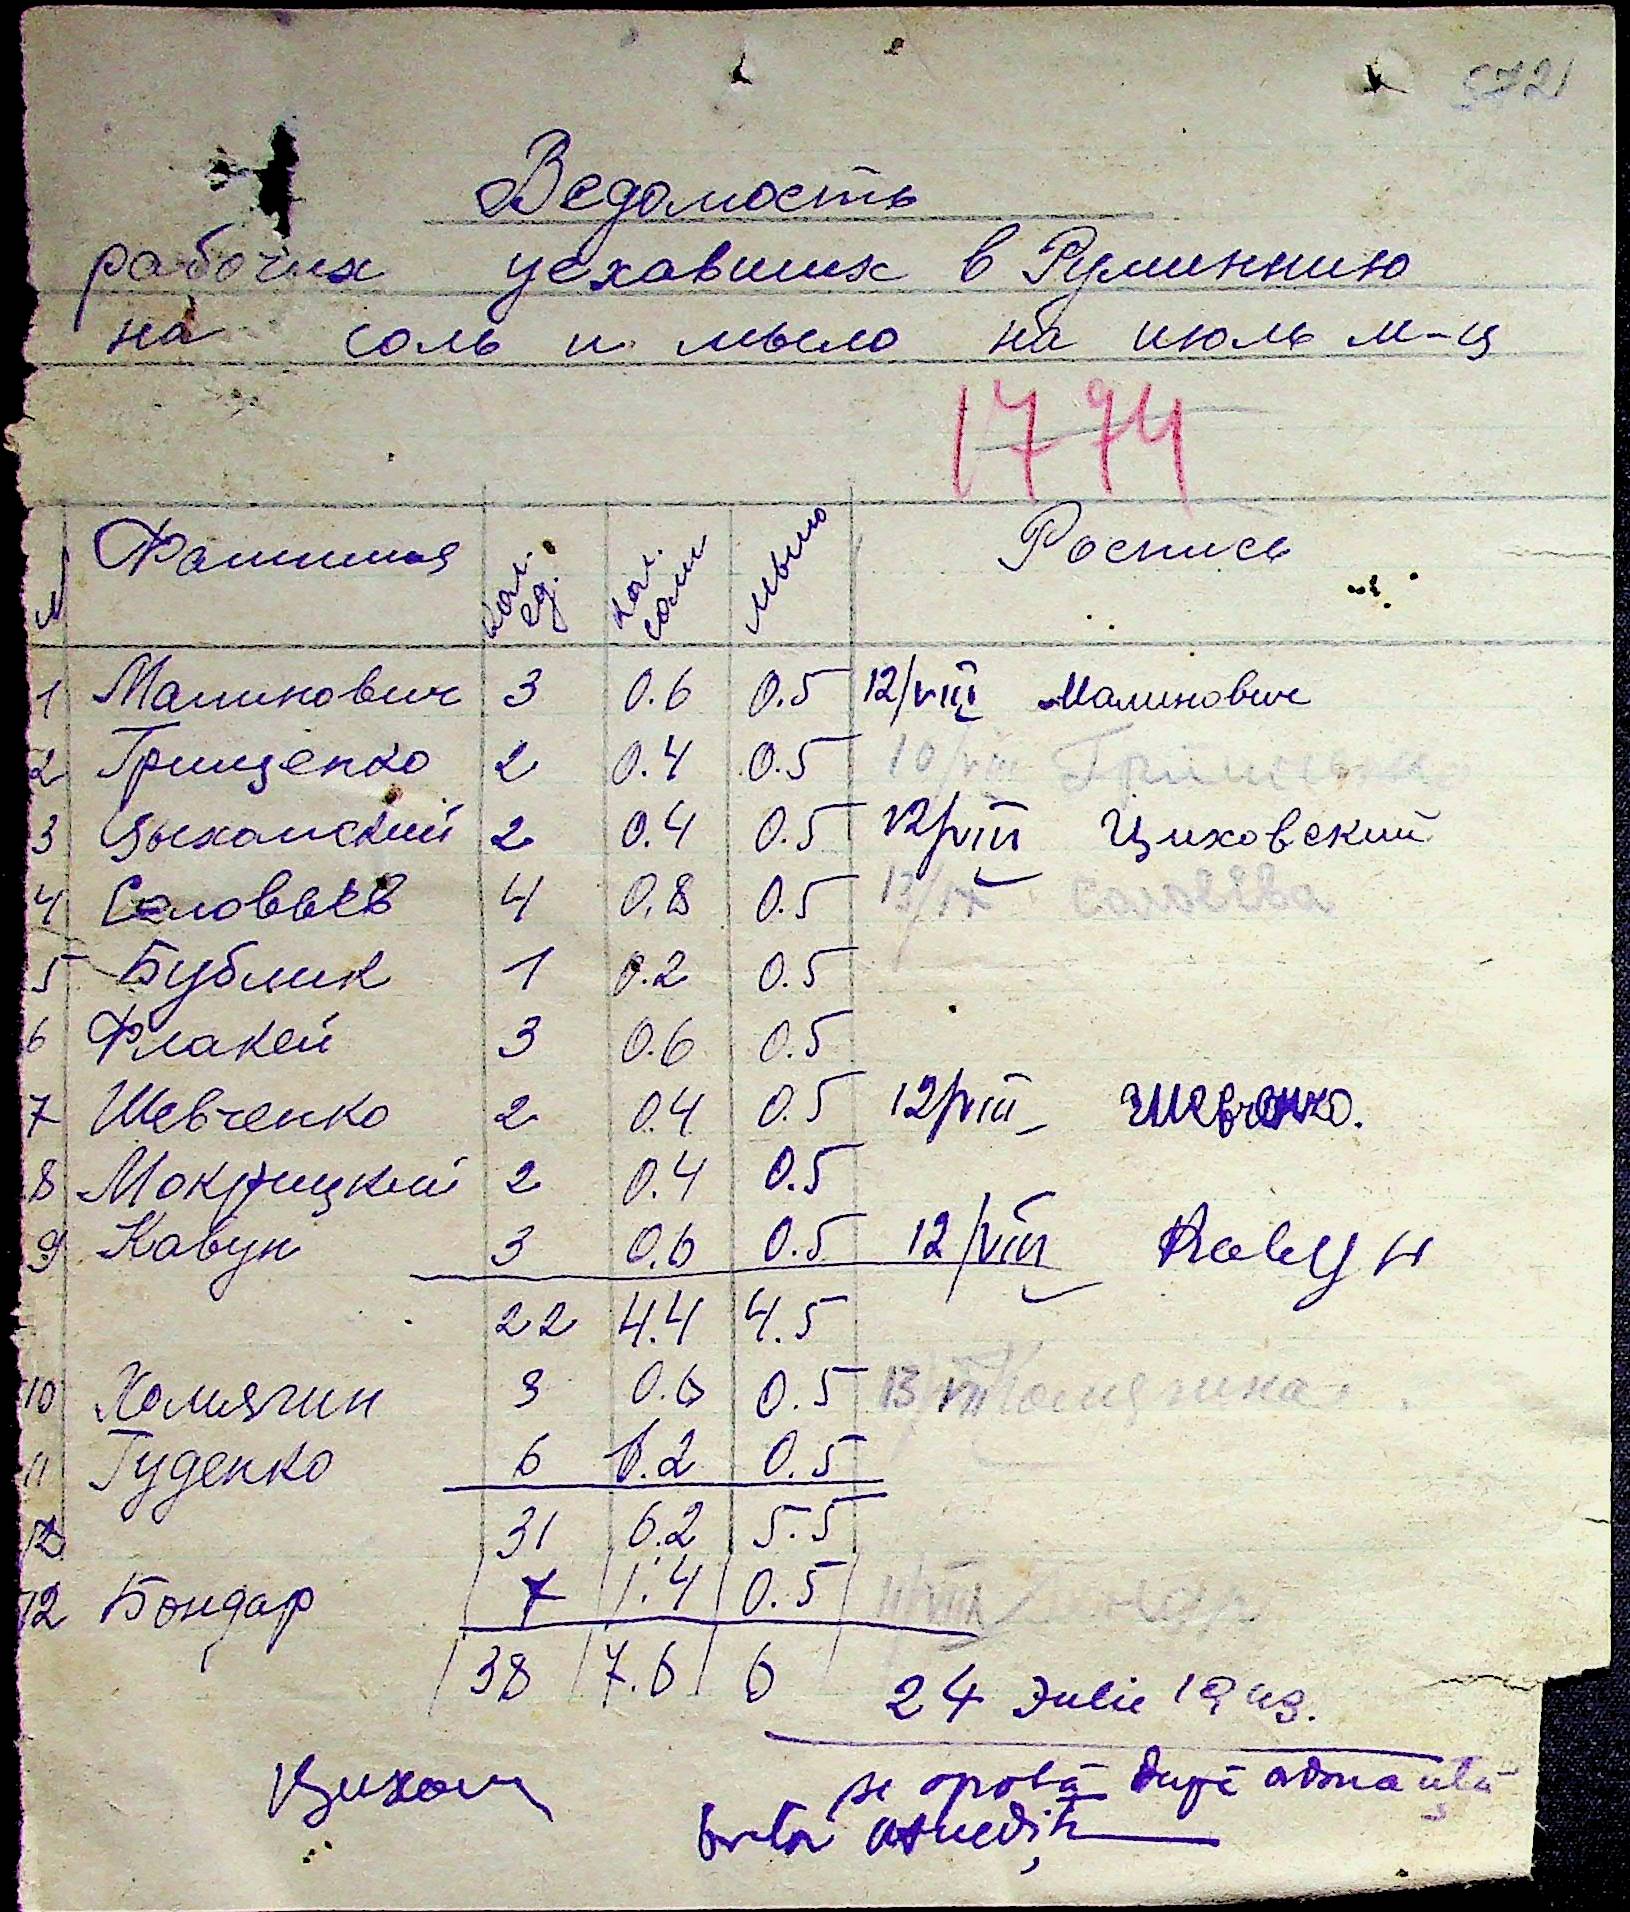 5721
Ведомость
рабочих уехавших в Руминнию
на соль и мыло на июль м-ц
1774
№ Фамилия кол. ед. кол. соли мыло Роспись
1 Малинович 3 0.6 0.5 12/VIII Малинович
2 Грищенко 2 0.4 0.5 10/VIII
3 Цыховский 2 0.4 0.5 12/VIII Циховский
4 Соловьев 4 0.8 0.5 Соловева
5 Бублик 1 0.2 0.5
6 Флакей 3 0.6 0.5
7 Шевченко 2 0.4 0.5 12/VIII Шевченко.
8 Мокрицкий 2 0.4 0.5
9 Кавун 3 0.6 0.5 12/VIII Кавун
22 4.4 4.5
10 Хомягин 3 0.6 0.5 13/VIII Хомягина
11 Гуденко 6 1.2 0.5
31 6.2 5.5
12 Бондар 7 1.4 0.5 11/VIII
38 7.6 6
24 Iulie 1943.
se aprobă după